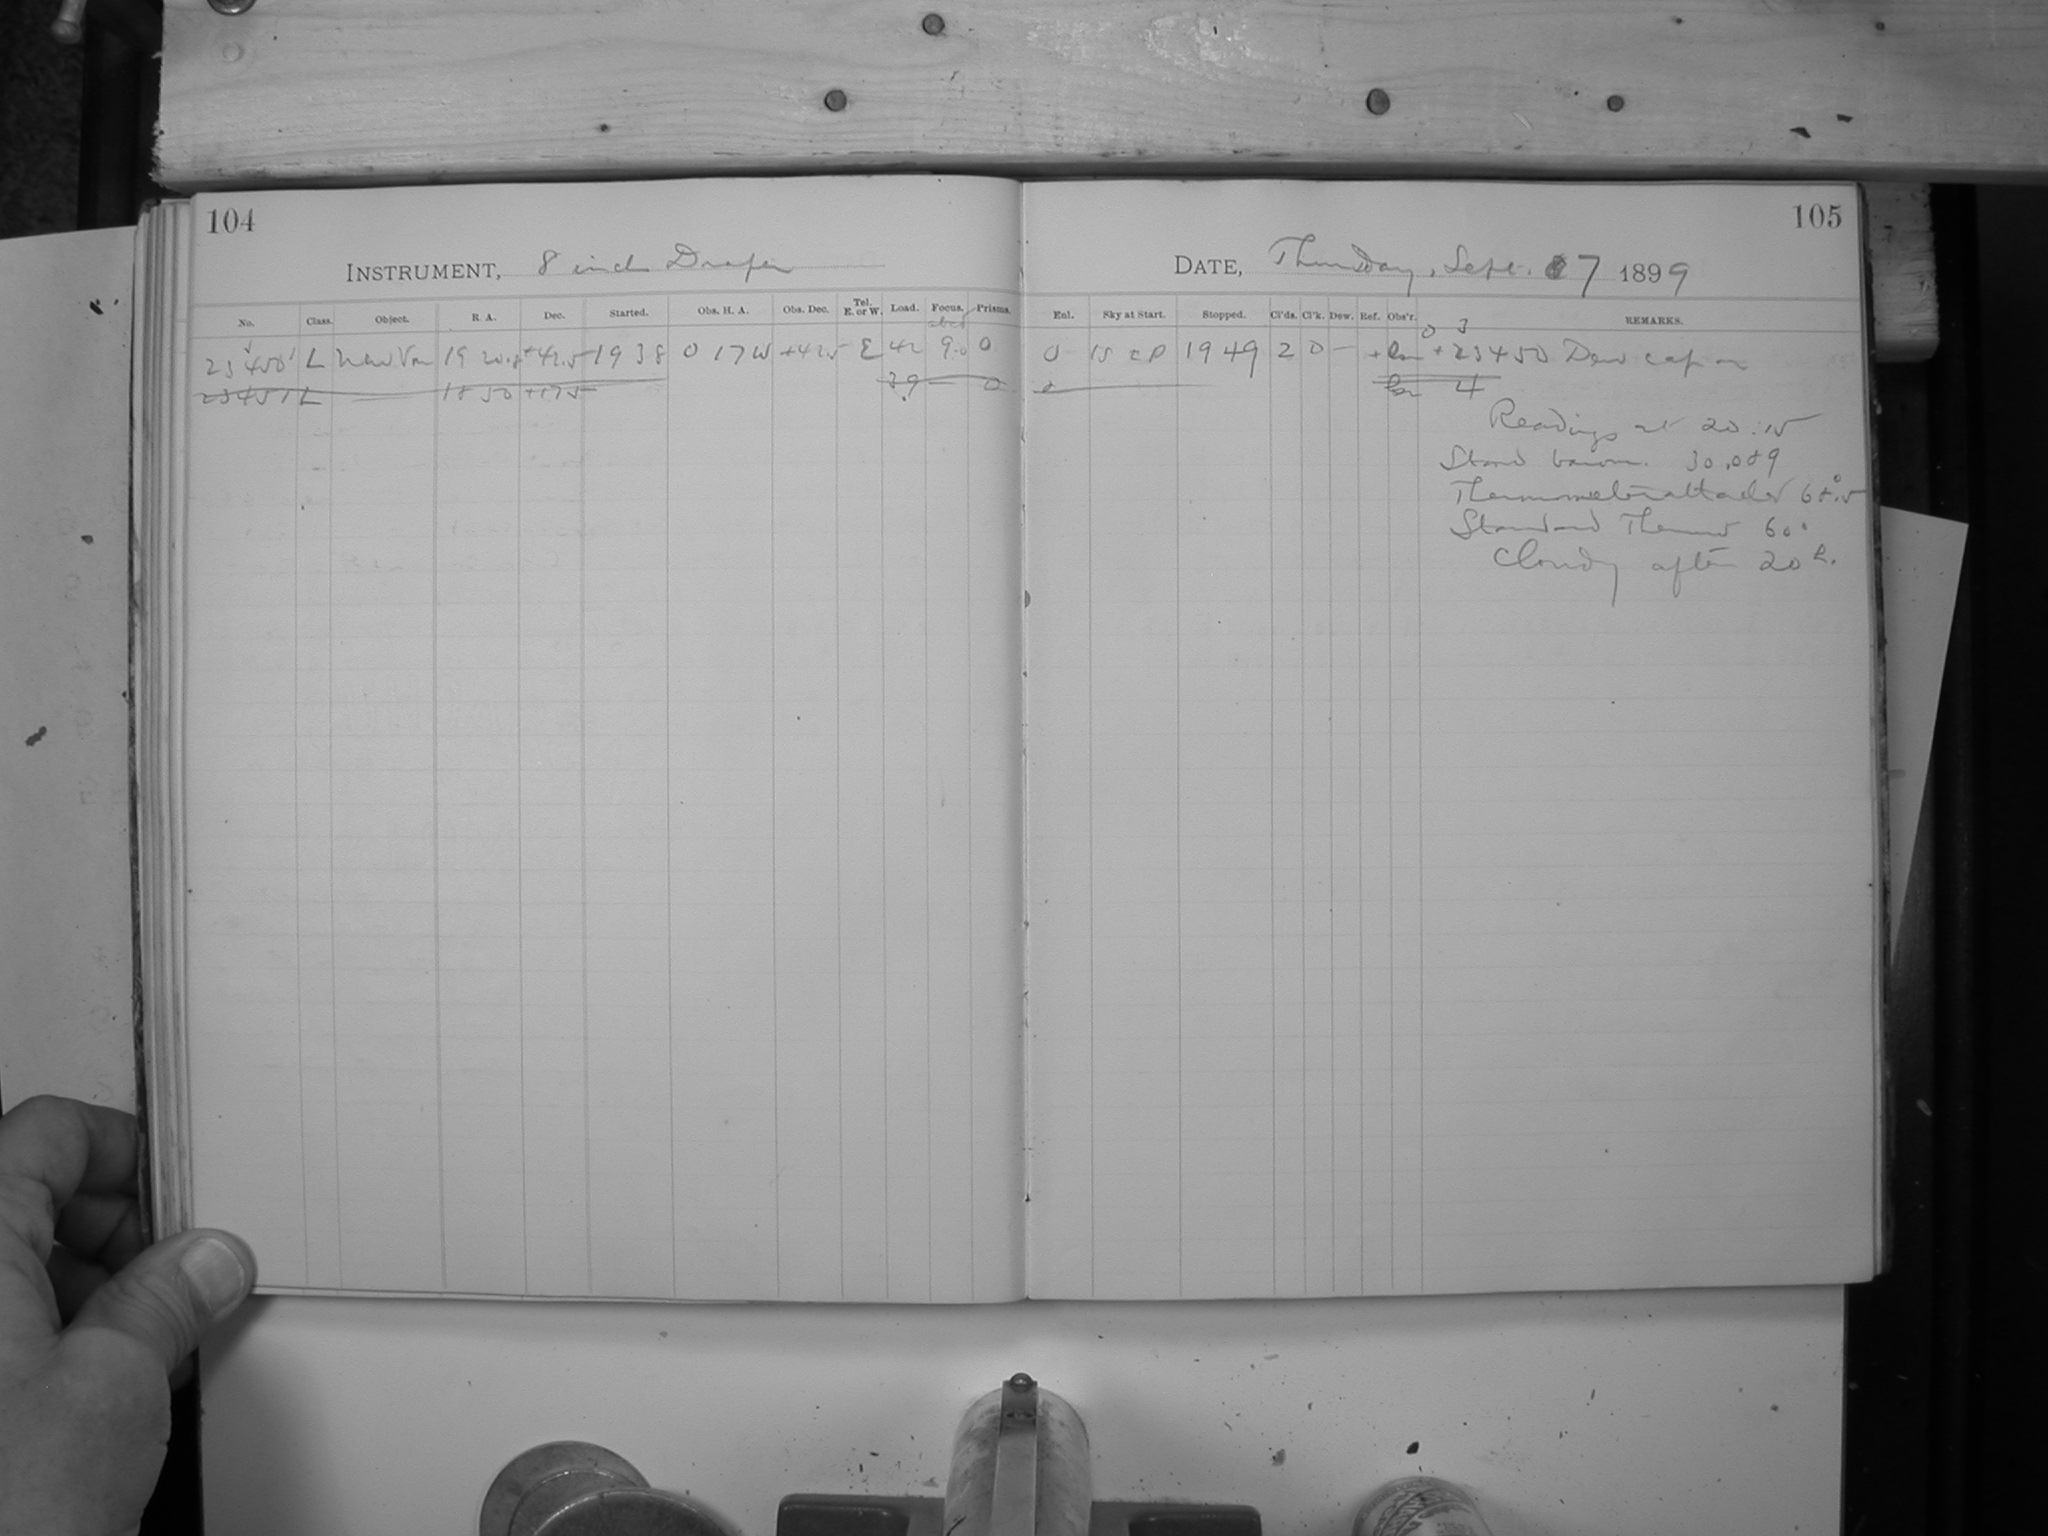 104
INSTRUMENT, 8 inch Draper
No. Class. Object. R. A. Dec. Started. Obs. H. A. Obs. Dec. Tel. E. or W. Load. Focus. Prisms.
23450 L New Var 19 20.8 +42.5 19 38 0 17 W +42.5 E 42 9.0 0
23451 L 18 50 +17.5 39 0
105
DATE, Thursday, Sept. 7 1899
Enl. Sky at Start. Stopped. Cl'ds. Cl'k. Dew. Ref. Obs'r. REMARKS.
0 3
0 19 49 2 0 - + 23450 Dew cap on
4
Readings at 20:15
Stand barom. 30.089
Thermometer attached 68°.5
Standard Thermr 60°
Cloudy after 20 h.